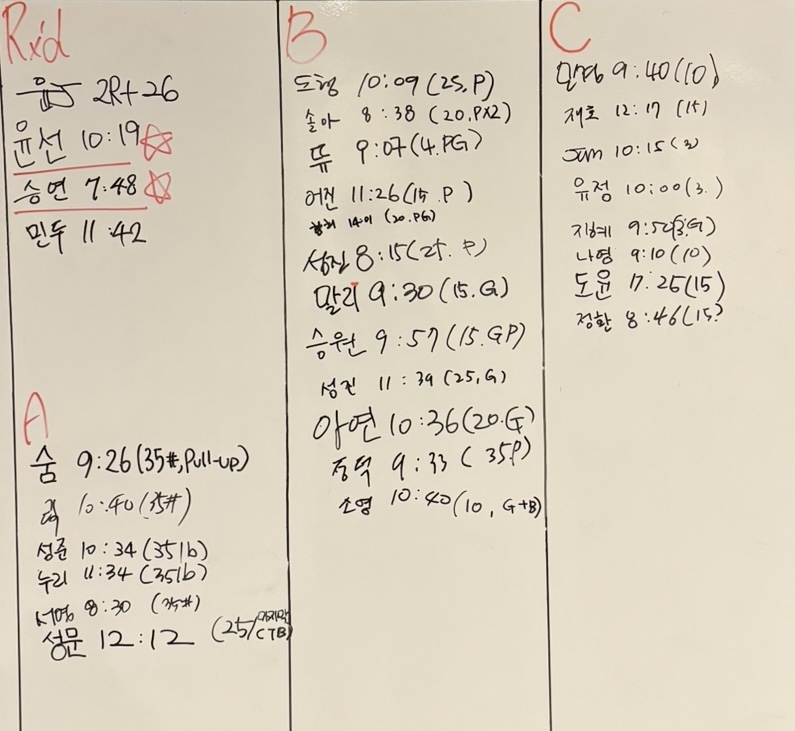 Rx'd
2R+26
윤선 10:19
승연 7:48
민두 11:42
A
숨 9:26 (35#, Pull-up)
10:40 (35#)
성준 10:34 (35lb)
누리 11:34 (35lb)
서영 8:30 (35#)
성문 12:12 (25/마지막 CTB)
B
도형 10:09 (25.P)
솔아 8:38 (20.PX2)
뜌 9:07 (4.PG)
어진 11:26 (15.P)
14:01 (20.PG)
성진 8:15 (25.P)
말리 9:30 (15.G)
승원 9:57 (15.GP)
성진 11:39 (25,G)
아연 10:36 (20.G)
정덕 9:33 (35P)
소영 10:40 (10, G+B)
C
9:40 (10)
재호 12:17 (15)
Jam 10:15 (3)
유정 10:00 (3.)
지혜 9:50 (3.G)
나영 9:10 (10)
도윤 17:25 (15)
정환 8:46 (15)